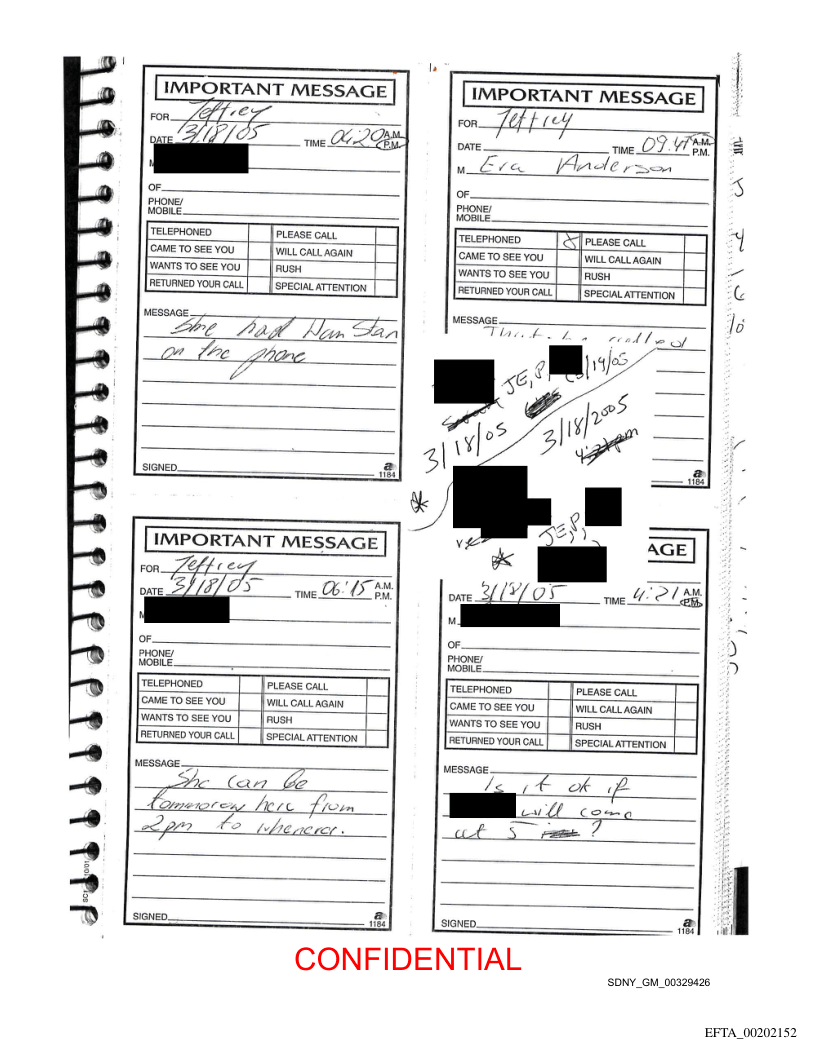 IMPORTANT MESSAGE
FOR Jeffrey
DATE 3/18/05 TIME 06:20 A.M. P.M.
M
OF
PHONE/
MOBILE
TELEPHONED PLEASE CALL
CAME TO SEE YOU WILL CALL AGAIN
WANTS TO SEE YOU RUSH
RETURNED YOUR CALL SPECIAL ATTENTION
MESSAGE
She had Stan
on the phone
SIGNED
1184
IMPORTANT MESSAGE
FOR Jeffrey
DATE TIME 09:47 A.M. P.M.
M Eva Anderson
OF
PHONE/
MOBILE
TELEPHONED PLEASE CALL
CAME TO SEE YOU WILL CALL AGAIN
WANTS TO SEE YOU RUSH
RETURNED YOUR CALL SPECIAL ATTENTION
MESSAGE
JE, P, 3/19/05
3/18/05
3/18/2005
4:21pm
JE, P,
1184
IMPORTANT MESSAGE
FOR Jeffrey
DATE 3/18/05 TIME 06:15 A.M. P.M.
OF
PHONE/
MOBILE
TELEPHONED PLEASE CALL
CAME TO SEE YOU WILL CALL AGAIN
WANTS TO SEE YOU RUSH
RETURNED YOUR CALL SPECIAL ATTENTION
MESSAGE
She can be
tommorow here from
2pm to whenever.
SIGNED
1184
AGE
DATE 3/18/05 TIME 4:21 A.M. P.M.
M
OF
PHONE/
MOBILE
TELEPHONED PLEASE CALL
CAME TO SEE YOU WILL CALL AGAIN
WANTS TO SEE YOU RUSH
RETURNED YOUR CALL SPECIAL ATTENTION
MESSAGE
Is it ok if
will come
at 5 ?
SIGNED
1184
CONFIDENTIAL
SDNY_GM_00329426
EFTA_00202152